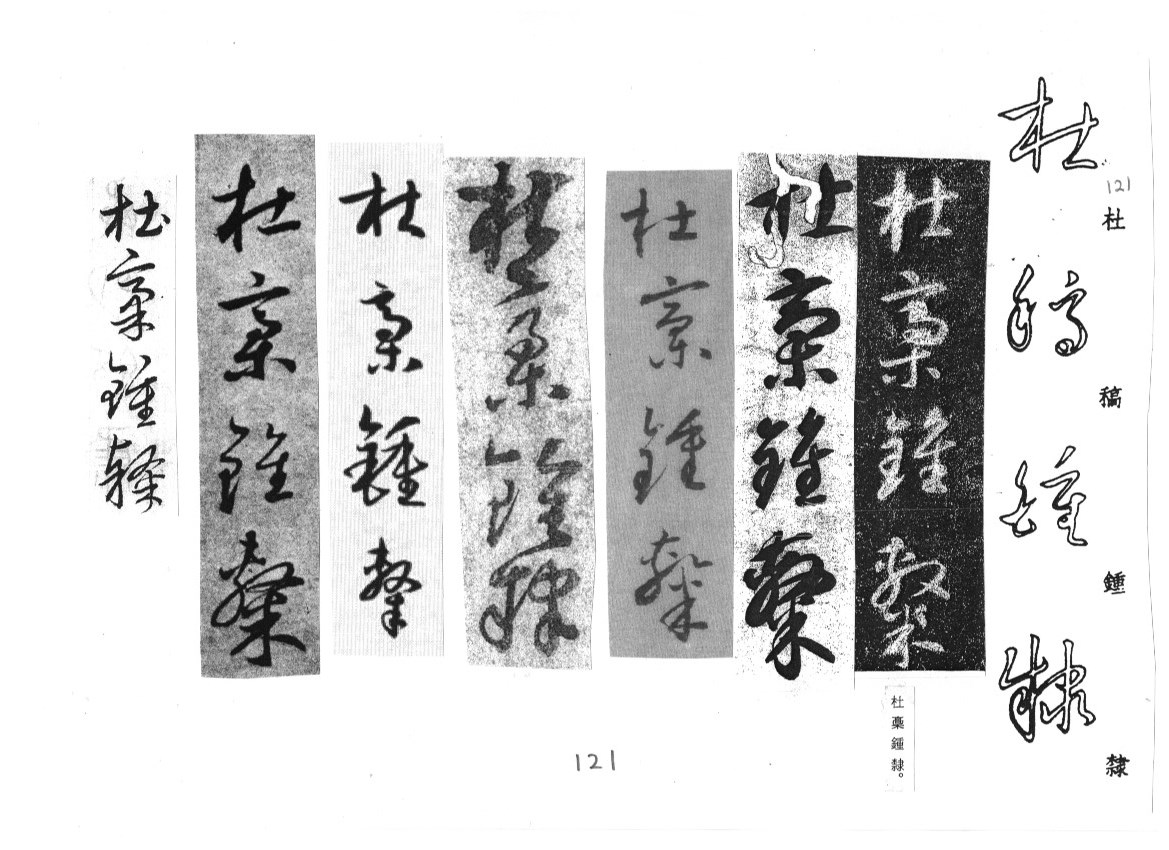 杜稿鍾隸
121
杜
稿
鍾
隸
杜稾鍾隸
杜稾鍾隸
杜稾鍾隸
杜稾鍾隸
杜稾鍾隸
杜稾鍾隸
杜稾鍾隸
杜稾鍾隸。
121